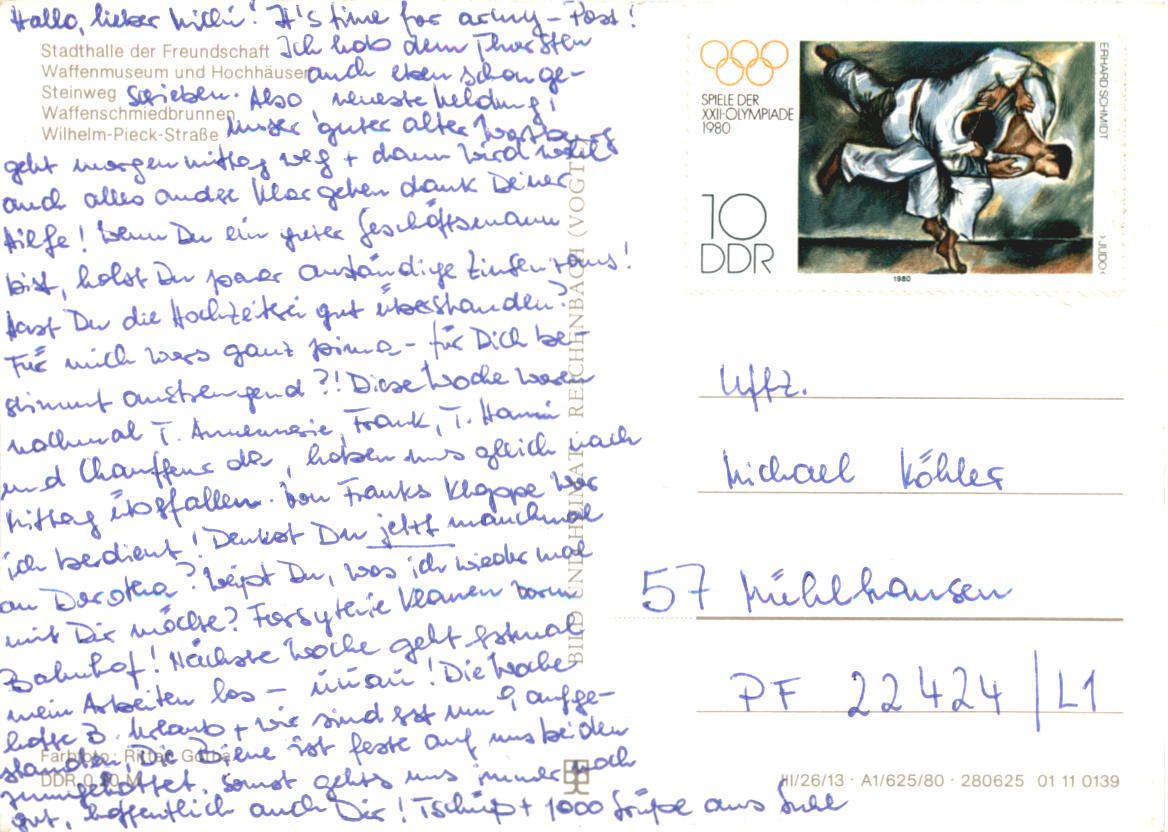 Hallo, lieber Milli! It's time for army-Post!
Stadthalle der Freundschaft
Ich hab dem Thorsten
Waffenmuseum und Hochhäuser
auch eben schon ge-
Steinweg
schrieben. Also, neueste Meldung!
Waffenschmiedbrunnen
Wilhelm-Pieck-Straße
Unser guter alter Wartburg
geht morgen mittag weg + dann wird wohl
auch alles andre klar gehen dank Deiner
Hilfe! Wenn Du ein guter Geschäftsmann
bist, holst Du paar anständige Zinsen raus!
Hast Du die Hochzeitsei gut überstanden?
Für mich wars ganz prima - für Dich be-
stimmt anstrengend?! Diese Woche waren
nochmal T. Annemarie, Frank, T. Hanni
und Chauffeur da, haben uns gleich nach
Mittag überfallen. Von Franks Klappe war
ich bedient! Denkst Du jetzt manchmal
an Dorothea? Weißt Du, was ich wieder mal
mit Dir möchte? Forsythie klauen vorm
Bahnhof! Nächste Woche geht erstmal
mein Arbeiten los - ! Die Woche
hatte B. Urlaub + wir sind erst um 9 aufge-
standen! Die Biene ist feste auf uns beiden
rumgehüpft. Sonst gehts uns immer noch
gut, hoffentlich auch Dir! Tschüß + 1000 Grüße aus Suhl
Farbfoto: Gotha
DDR 0,20 M
BILD UND HEIMAT · REICHENBACH (VOGTL)
SPIELE DER
XXII. OLYMPIADE
1980
10
DDR
ERHARD SCHMIDT
›JUDO‹
1980
Uffz.
Michael Köhler
57 Mühlhausen
PF 22424/L1
III/26/13 · A1/625/80 · 280625 01 11 0139